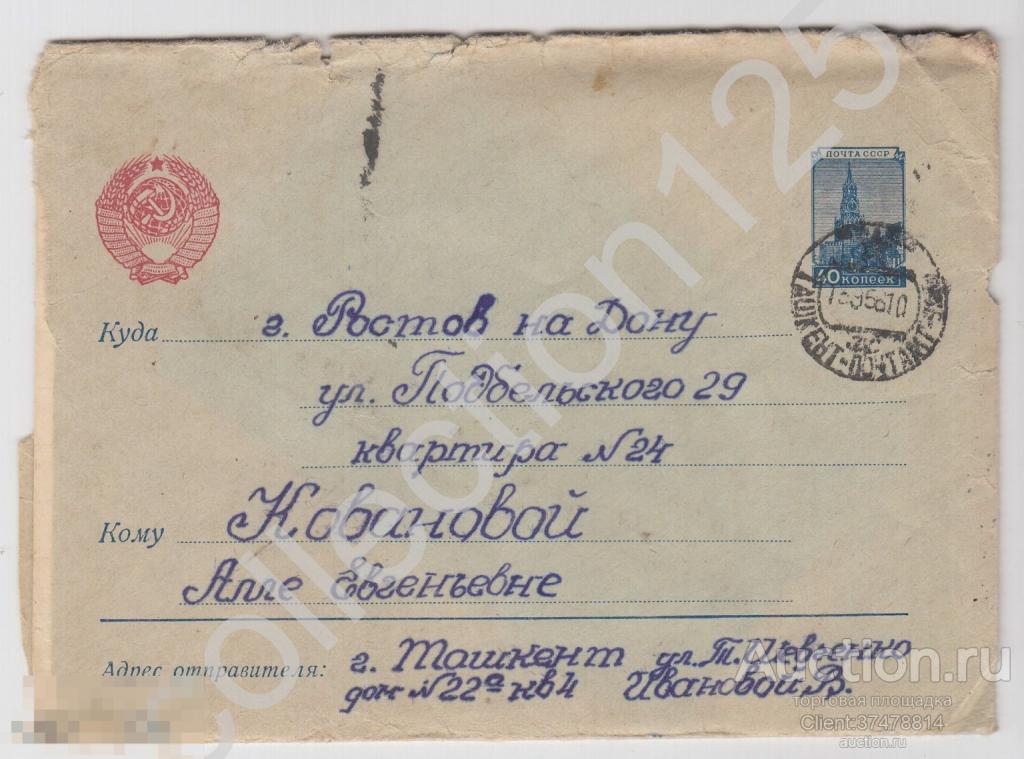 ПОЧТА СССР
40 КОПЕЕК
ТАШКЕНТ-ПОЧТАМТ
Куда г. Ростов на Дону
ул. Подбельского 29
квартира N24
Кому Ковановой
Алле Евгеньевне
Адрес отправителя: г. Ташкент ул. Т. Шевченко
дом N22а кв 4 Ивановой В.
collection 125
Auction.ru
торговая площадка
Client:37478814
auction.ru